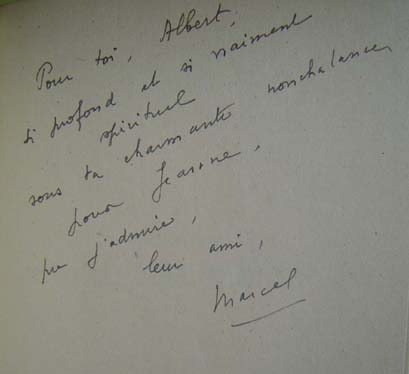 Pour toi, Albert,
si profond et si vraiment
spirituel
sous ta charmante nonchalance,
pour Jeanne,
que j'admire,
leur ami,
Marcel